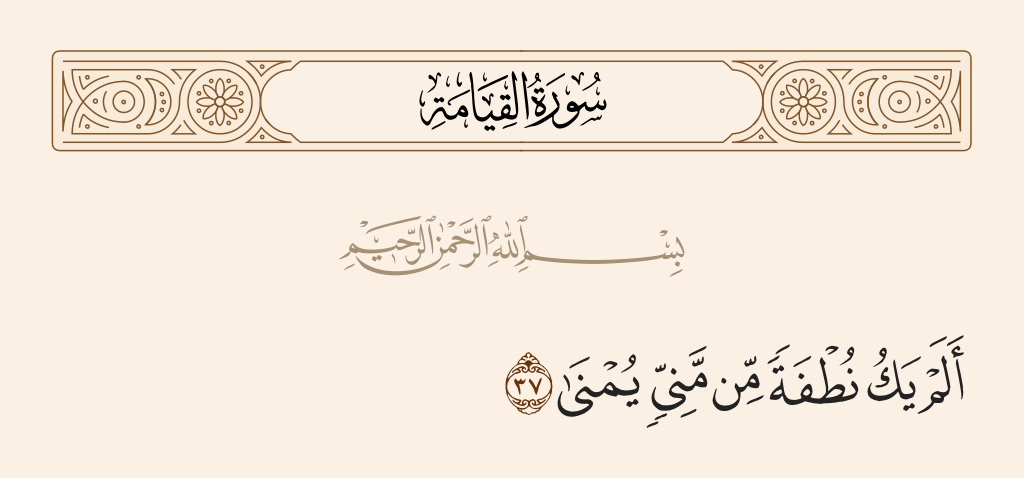 سُورَةُ القِيَامَةِ
بِسْمِ ٱللَّهِ ٱلرَّحْمَٰنِ ٱلرَّحِيمِ
أَلَمْ يَكُ نُطْفَةً مِّن مَّنِىٍّ يُمْنَىٰ ٣٧